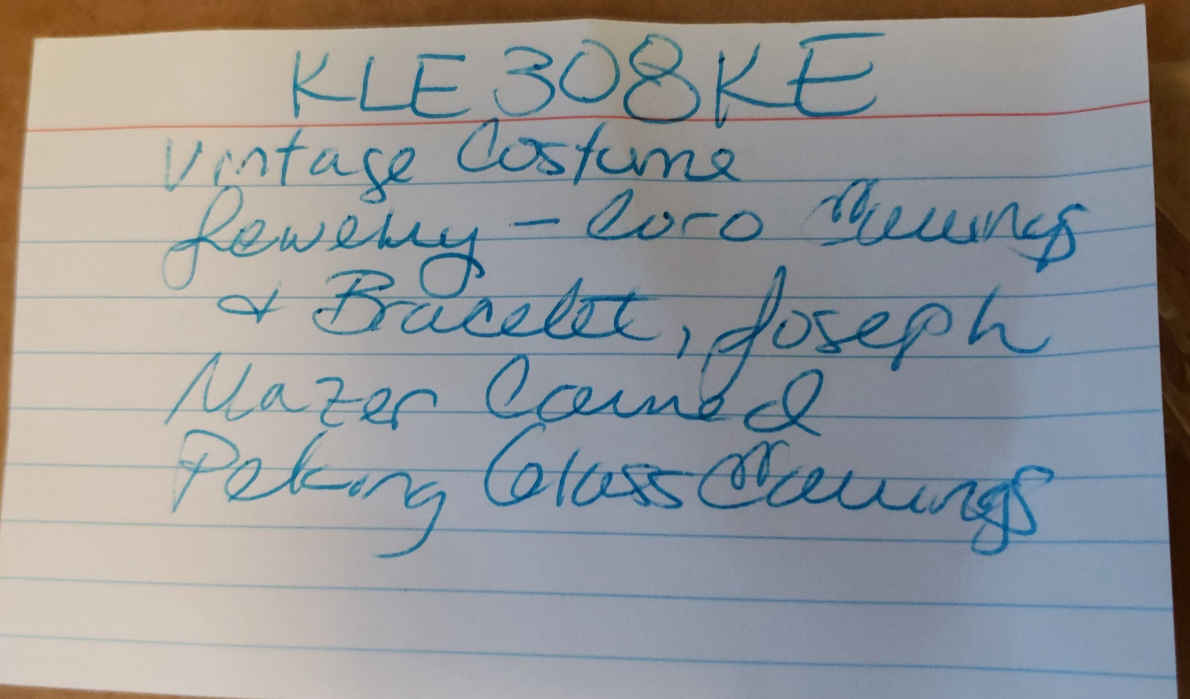 KLE308KE
Vintage Costume
Jewelry - Coro Earrings
& Bracelet, Joseph
Mazer Carved
Peking Glass Earrings